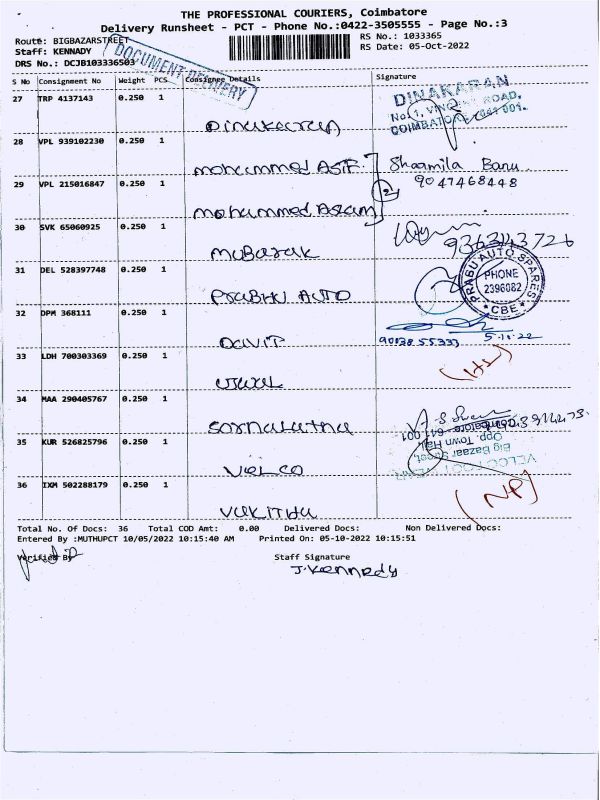 THE PROFESSIONAL COURIERS, Coimbatore
Delivery Runsheet - PCT - Phone No.:0422-3505555 - Page No.:3
Route: BIGBAZARSTREET
RS No.: 1033365
Staff: KENNADY
RS Date: 05-Oct-2022
DRS No.: DCJB103336503
DOCUMENT DELIVERY
S No Consignment No Weight PCS Consignee Details Signature
27 TRP 4137143 0.250 1
Dinakaran
DINAKARAN
ROAD,
COIMBATORE - 641 001.
28 VPL 939102230 0.250 1
mohammed ASIF
Shaamila Banu
29 VPL 215016847 0.250 1
9047468448
mohammed Aslam
2
30 SVK 65060925 0.250 1
mubarak
9363143726
31 DEL 528397748 0.250 1
PRABHU AUTO
PRABU AUTO SPARES
PHONE
2396082
CBE
32 DPM 368111 0.250 1
DAVIT
5-10-22
33 LDH 700303369 0.250 1
34 MAA 290405767 0.250 1
35 KUR 526825796 0.250 1
VELCO
Big Bazaar Street,
Opp. Town Hall,
Coimbatore - 641 001
36 IXM 502288179 0.250 1
(NP)
Total No. Of Docs: 36 Total COD Amt: 0.00 Delivered Docs: Non Delivered Docs:
Entered By :MUTHUPCT 10/05/2022 10:15:40 AM Printed On: 05-10-2022 10:15:51
Verified By
Staff Signature
J. Kennedy